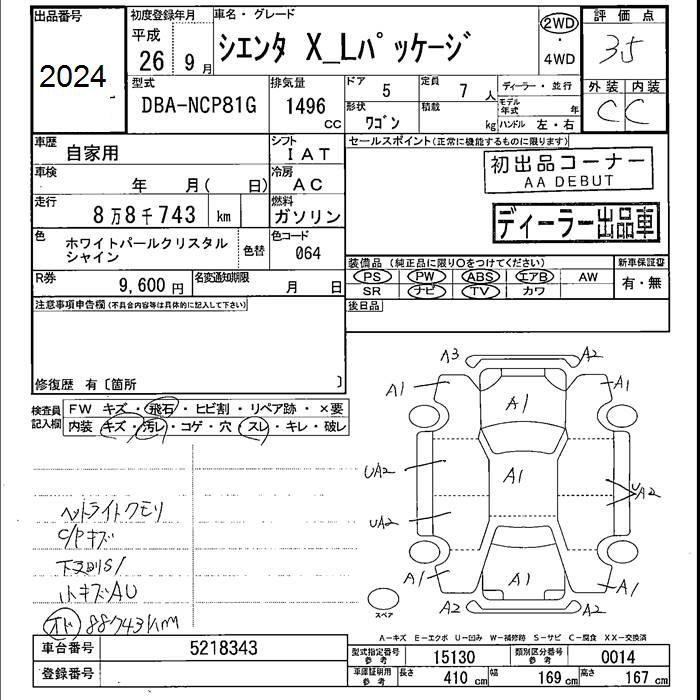 出品番号
2024
初度登録年月
平成
26 9 月
車名・グレード
シエンタ X_Lパッケージ
2WD
・
4WD
評価点
3.5
型式
DBA-NCP81G
排気量
1496
CC
ドア 5
定員 7 人
形状
ワゴン
積載
kg
ディーラー・並行
モデル
年式 年
ハンドル 左・右
外装 内装
C C
車歴
自家用
シフト
IAT
車検
年 月( 日)
冷房
AC
走行
8万8千743 km
燃料
ガソリン
色
ホワイトパールクリスタル
シャイン
色替
色コード
064
R券
9,600 円
名変通知期限
月 日
セールスポイント(正常に機能するものに限ります)
初出品コーナー
AA DEBUT
ディーラー出品車
装備品(純正品に限り○をつけてください)
PS PW ABS エアB AW
SR ナビ TV カワ
新車保証書
有・無
後日品
注意事項申告欄(不具合内容等は具体的に記入して下さい)
修復歴 有〔箇所 〕
検査員
記入欄
FW キズ・飛石・ヒビ割・リペア跡・×要
内装 キズ・汚レ・コゲ・穴・スレ・キレ・破レ
ヘットライトクモリ
C/Pキズ
小キズAU
オド 88743km
A3 A2
A1 A1 A1
UA2 A1 UA2
UA2
A1 A1 A1
A2 A2
スペア
A-キズ E-エクボ U-凹み W-補修跡 S-サビ C-腐食 XX-交換済
車台番号 5218343
登録番号
型式指定番号
参考
15130
類別区分番号
参考
0014
車庫証明用
参考
長さ 410 cm 幅 169 cm 高さ 167 cm